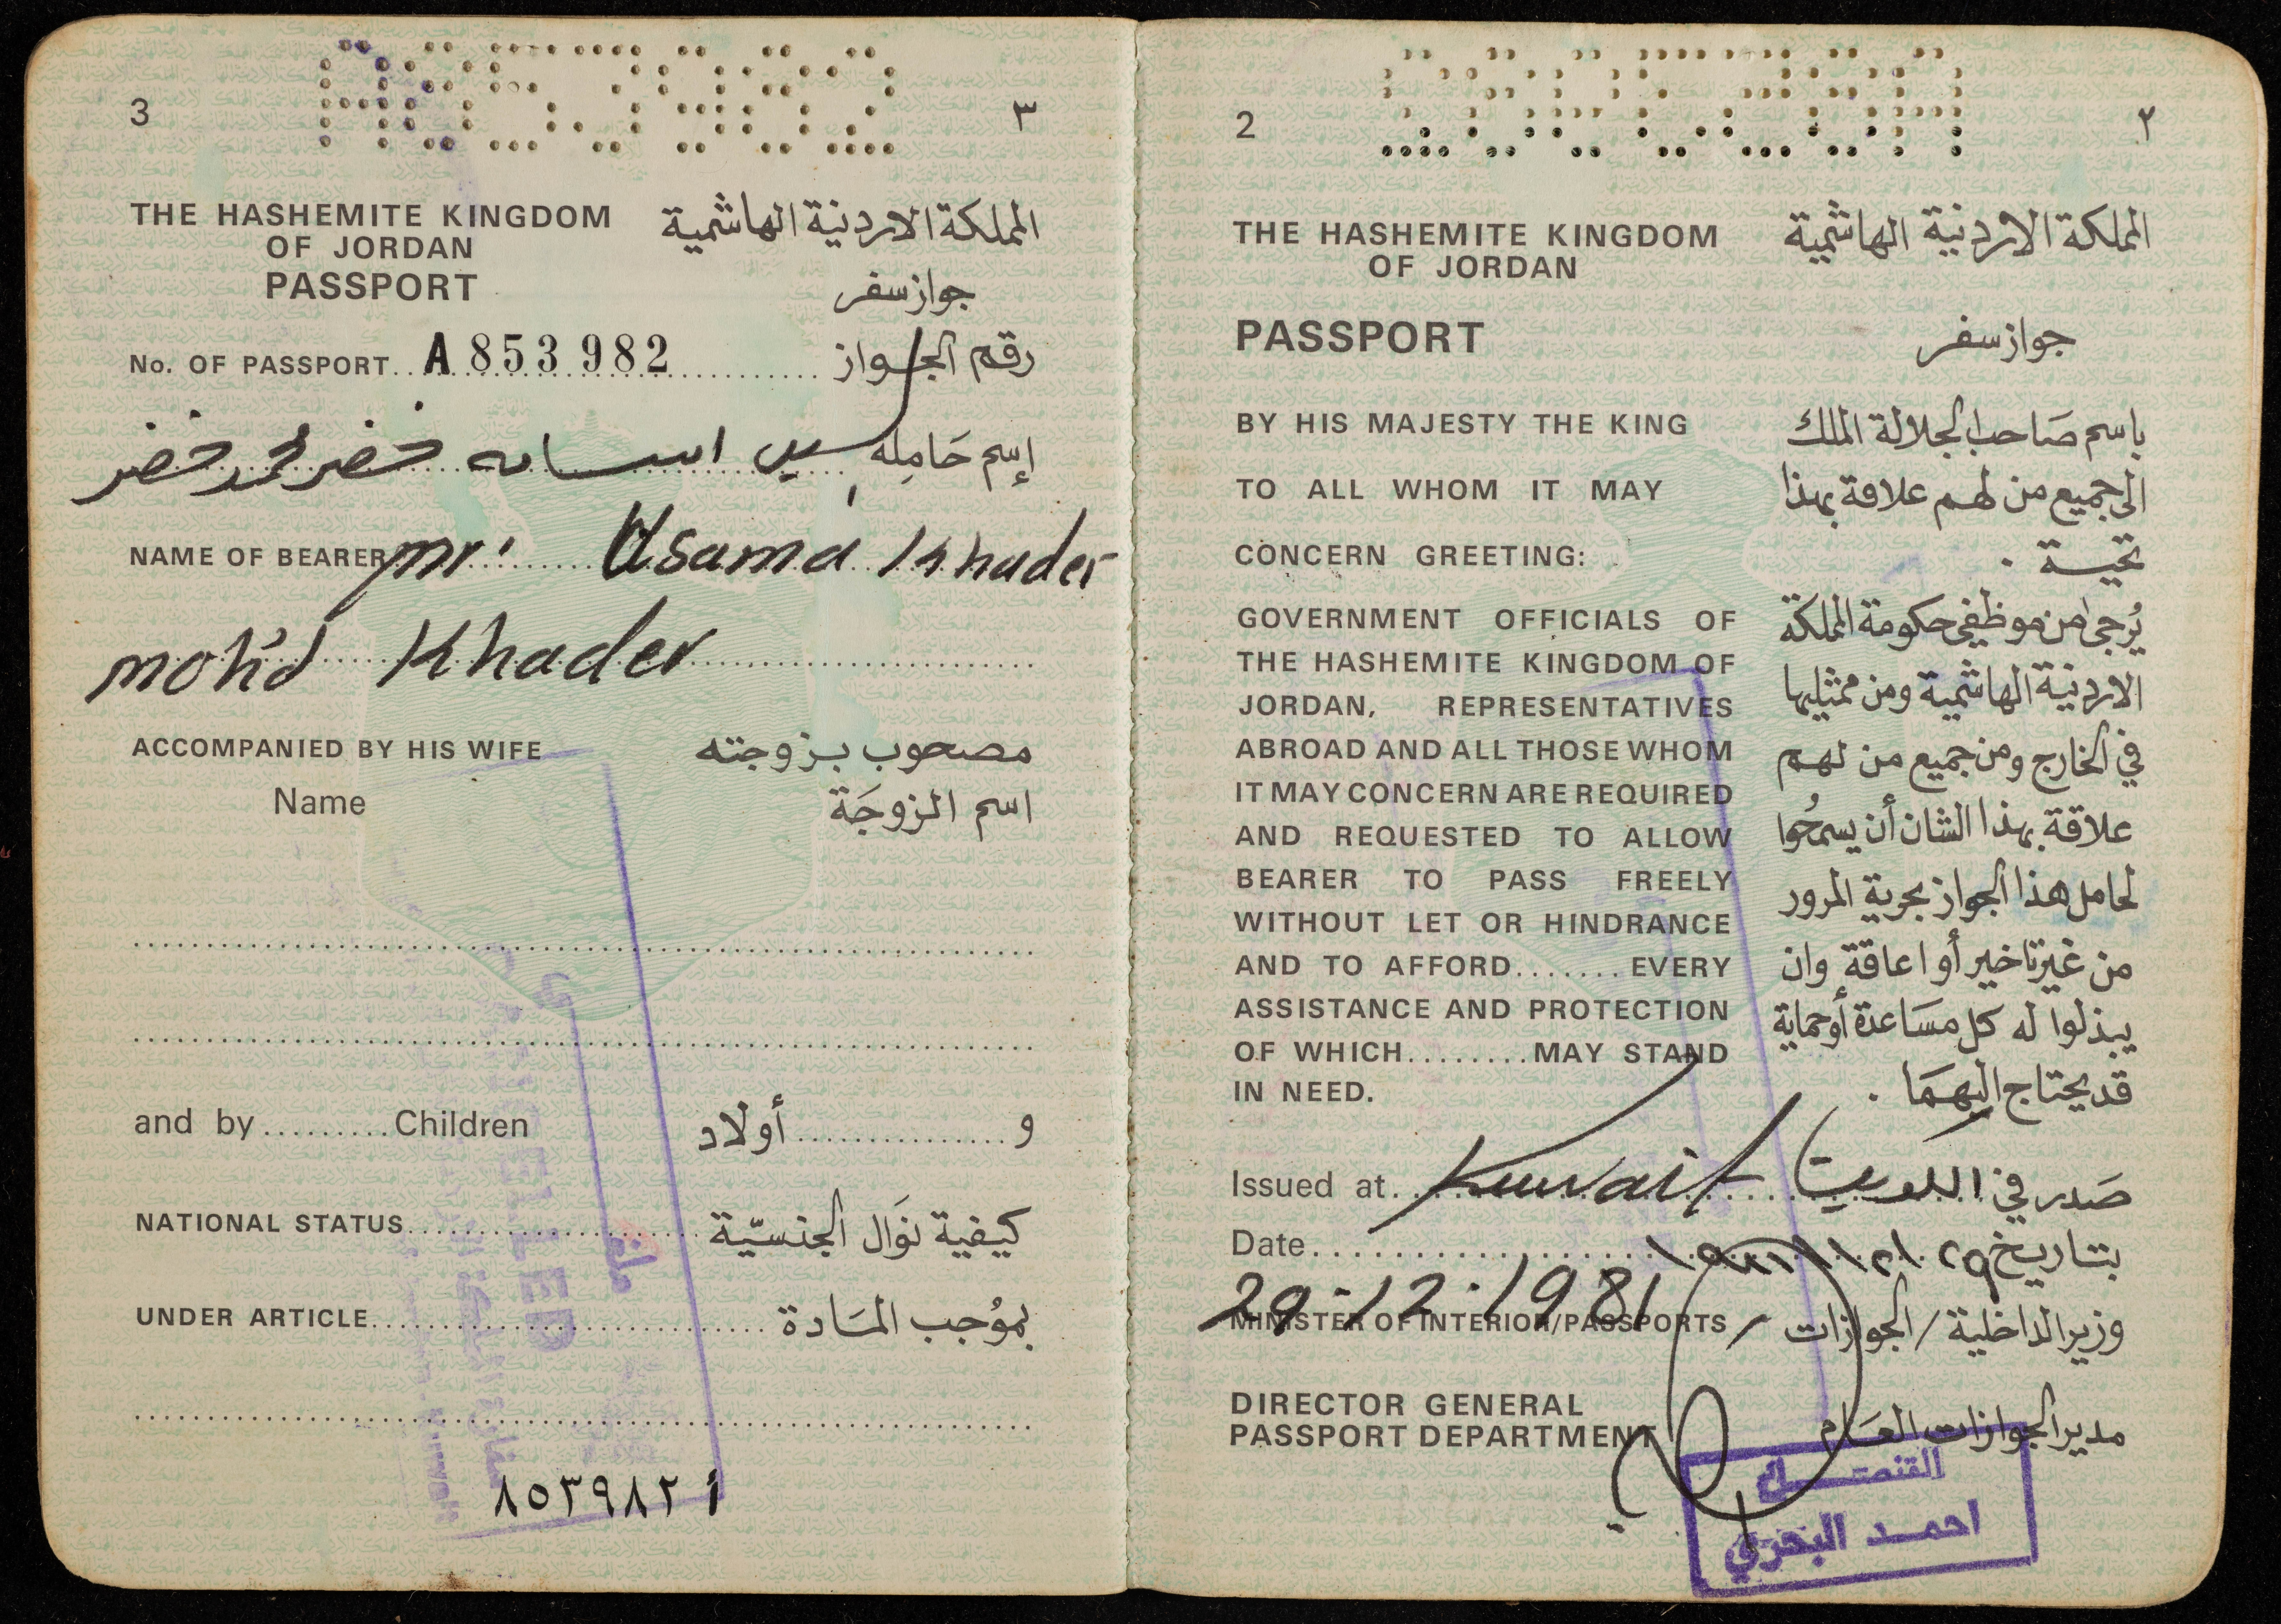 A853982
3 ٣
THE HASHEMITE KINGDOM المملكة الاردنية الهاشمية
OF JORDAN
PASSPORT جواز سفر
No. OF PASSPORT.. A 853982 رقم الجواز
إسم حَامِله السيد اسامه خضر محمد خضر
NAME OF BEARER mr. Usama Khader
moh'd Khader
ACCOMPANIED BY HIS WIFE مصحوب بزوجته
Name اسم الزوجَة
and by ......... Children أولاد ............... و
NATIONAL STATUS كيفية نوَال الجنسيّة
UNDER ARTICLE بموُجب المسَادة
أ ٨٥٣٩٨٢
2 ٢
THE HASHEMITE KINGDOM المملكة الاردنية الهاشمية
OF JORDAN
PASSPORT جواز سفر
BY HIS MAJESTY THE KING باسم صَاحب الجلالة الملك
TO ALL WHOM IT MAY الى جميع من لهم علاقة بهذا
CONCERN GREETING: تحية .
GOVERNMENT OFFICIALS OF يُرجى من موظفي حكومة المملكة
THE HASHEMITE KINGDOM OF الاردنية الهاشمية ومن ممثليها
JORDAN, REPRESENTATIVES
ABROAD AND ALL THOSE WHOM في الخارج ومن جميع من لهم
IT MAY CONCERN ARE REQUIRED
AND REQUESTED TO ALLOW علاقة بهذا الشان أن يسمحُوا
BEARER TO PASS FREELY لحامل هذا الجواز بحرية المرور
WITHOUT LET OR HINDRANCE
AND TO AFFORD....... EVERY من غير تاخير أو اعاقة وان
ASSISTANCE AND PROTECTION يبذلوا له كل مسَاعدة أو حماية
OF WHICH........ MAY STAND
IN NEED. قد يحتاج اليهمَا .
Issued at Kuwait صَدر في الكويت
Date بتاريخ ٢٩/١٢/١٩٨١
29.12.1981
MINISTER OF INTERIOR/PASSPORTS / وزير الداخلية / الجوازات
DIRECTOR GENERAL
PASSPORT DEPARTMENT مدير الجوازات العَام
القنصل
احمد